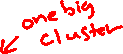 one big
cluster